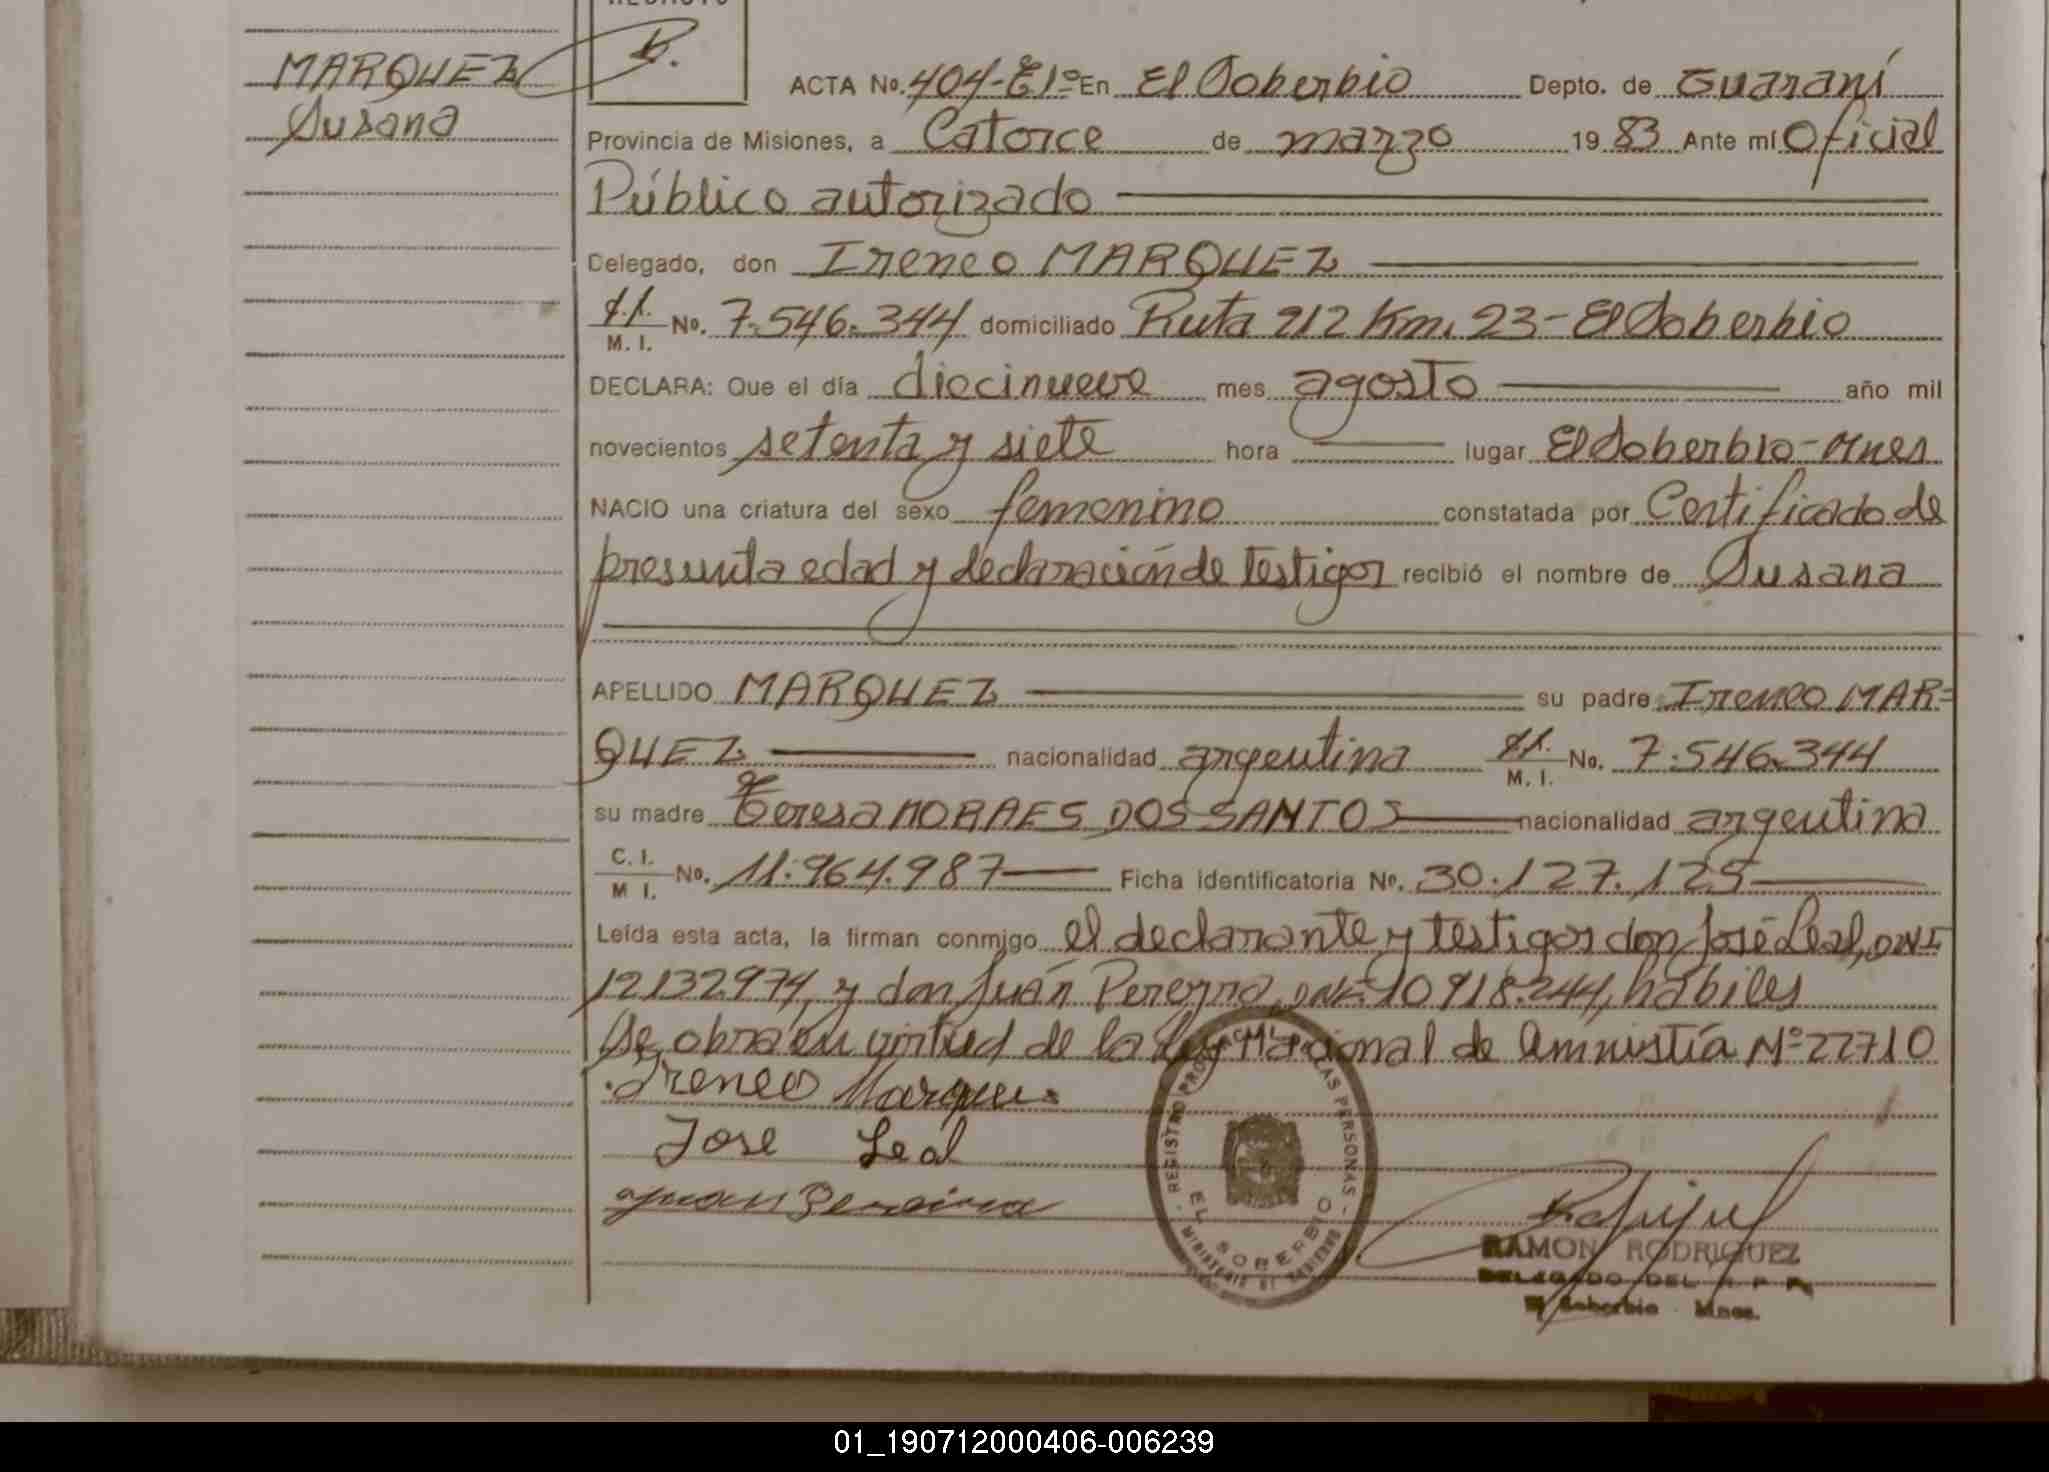 MARQUEZ
Susana
R.
ACTA No. 404-E1º En El Soberbio Depto. de Guaraní
Provincia de Misiones, a Catorce de marzo 19 83 Ante mí Oficial
Público autorizado
Delegado, don Ireneo MARQUEZ
M. I. No. 7.546.344 domiciliado Ruta 212 Km. 23 - El Soberbio
DECLARA: Que el día diecinueve mes agosto año mil
novecientos setenta y siete hora lugar El Soberbio - Mnes
NACIO una criatura del sexo femenino constatada por Certificado de
presunta edad y declaración de testigos recibió el nombre de Susana
APELLIDO MARQUEZ su padre Ireneo MAR=
QUEZ nacionalidad argentina M. I. No. 7.546.344
su madre Teresa MORAES DOS SANTOS nacionalidad argentina
C. I. M I. No. 11.964.987 Ficha identificatoria No. 30.127.125
Leída esta acta, la firman conmigo el declarante y testigos don José Leal, DNI
12132974, y don Juán Pereyra, DNI. 10918.244, hábiles
Se obra en virtud de la Ley Nacional de Amnistía Nº 22710
Ireneo Marques
Jose Leal
Juan Pereira
REGISTRO PROVINCIAL DE LAS PERSONAS
EL SOBERBIO
MINISTERIO DE GOBIERNO
RAMON RODRIGUEZ
DELEGADO DEL R P P
El Soberbio Mnes.
01_190712000406-006239